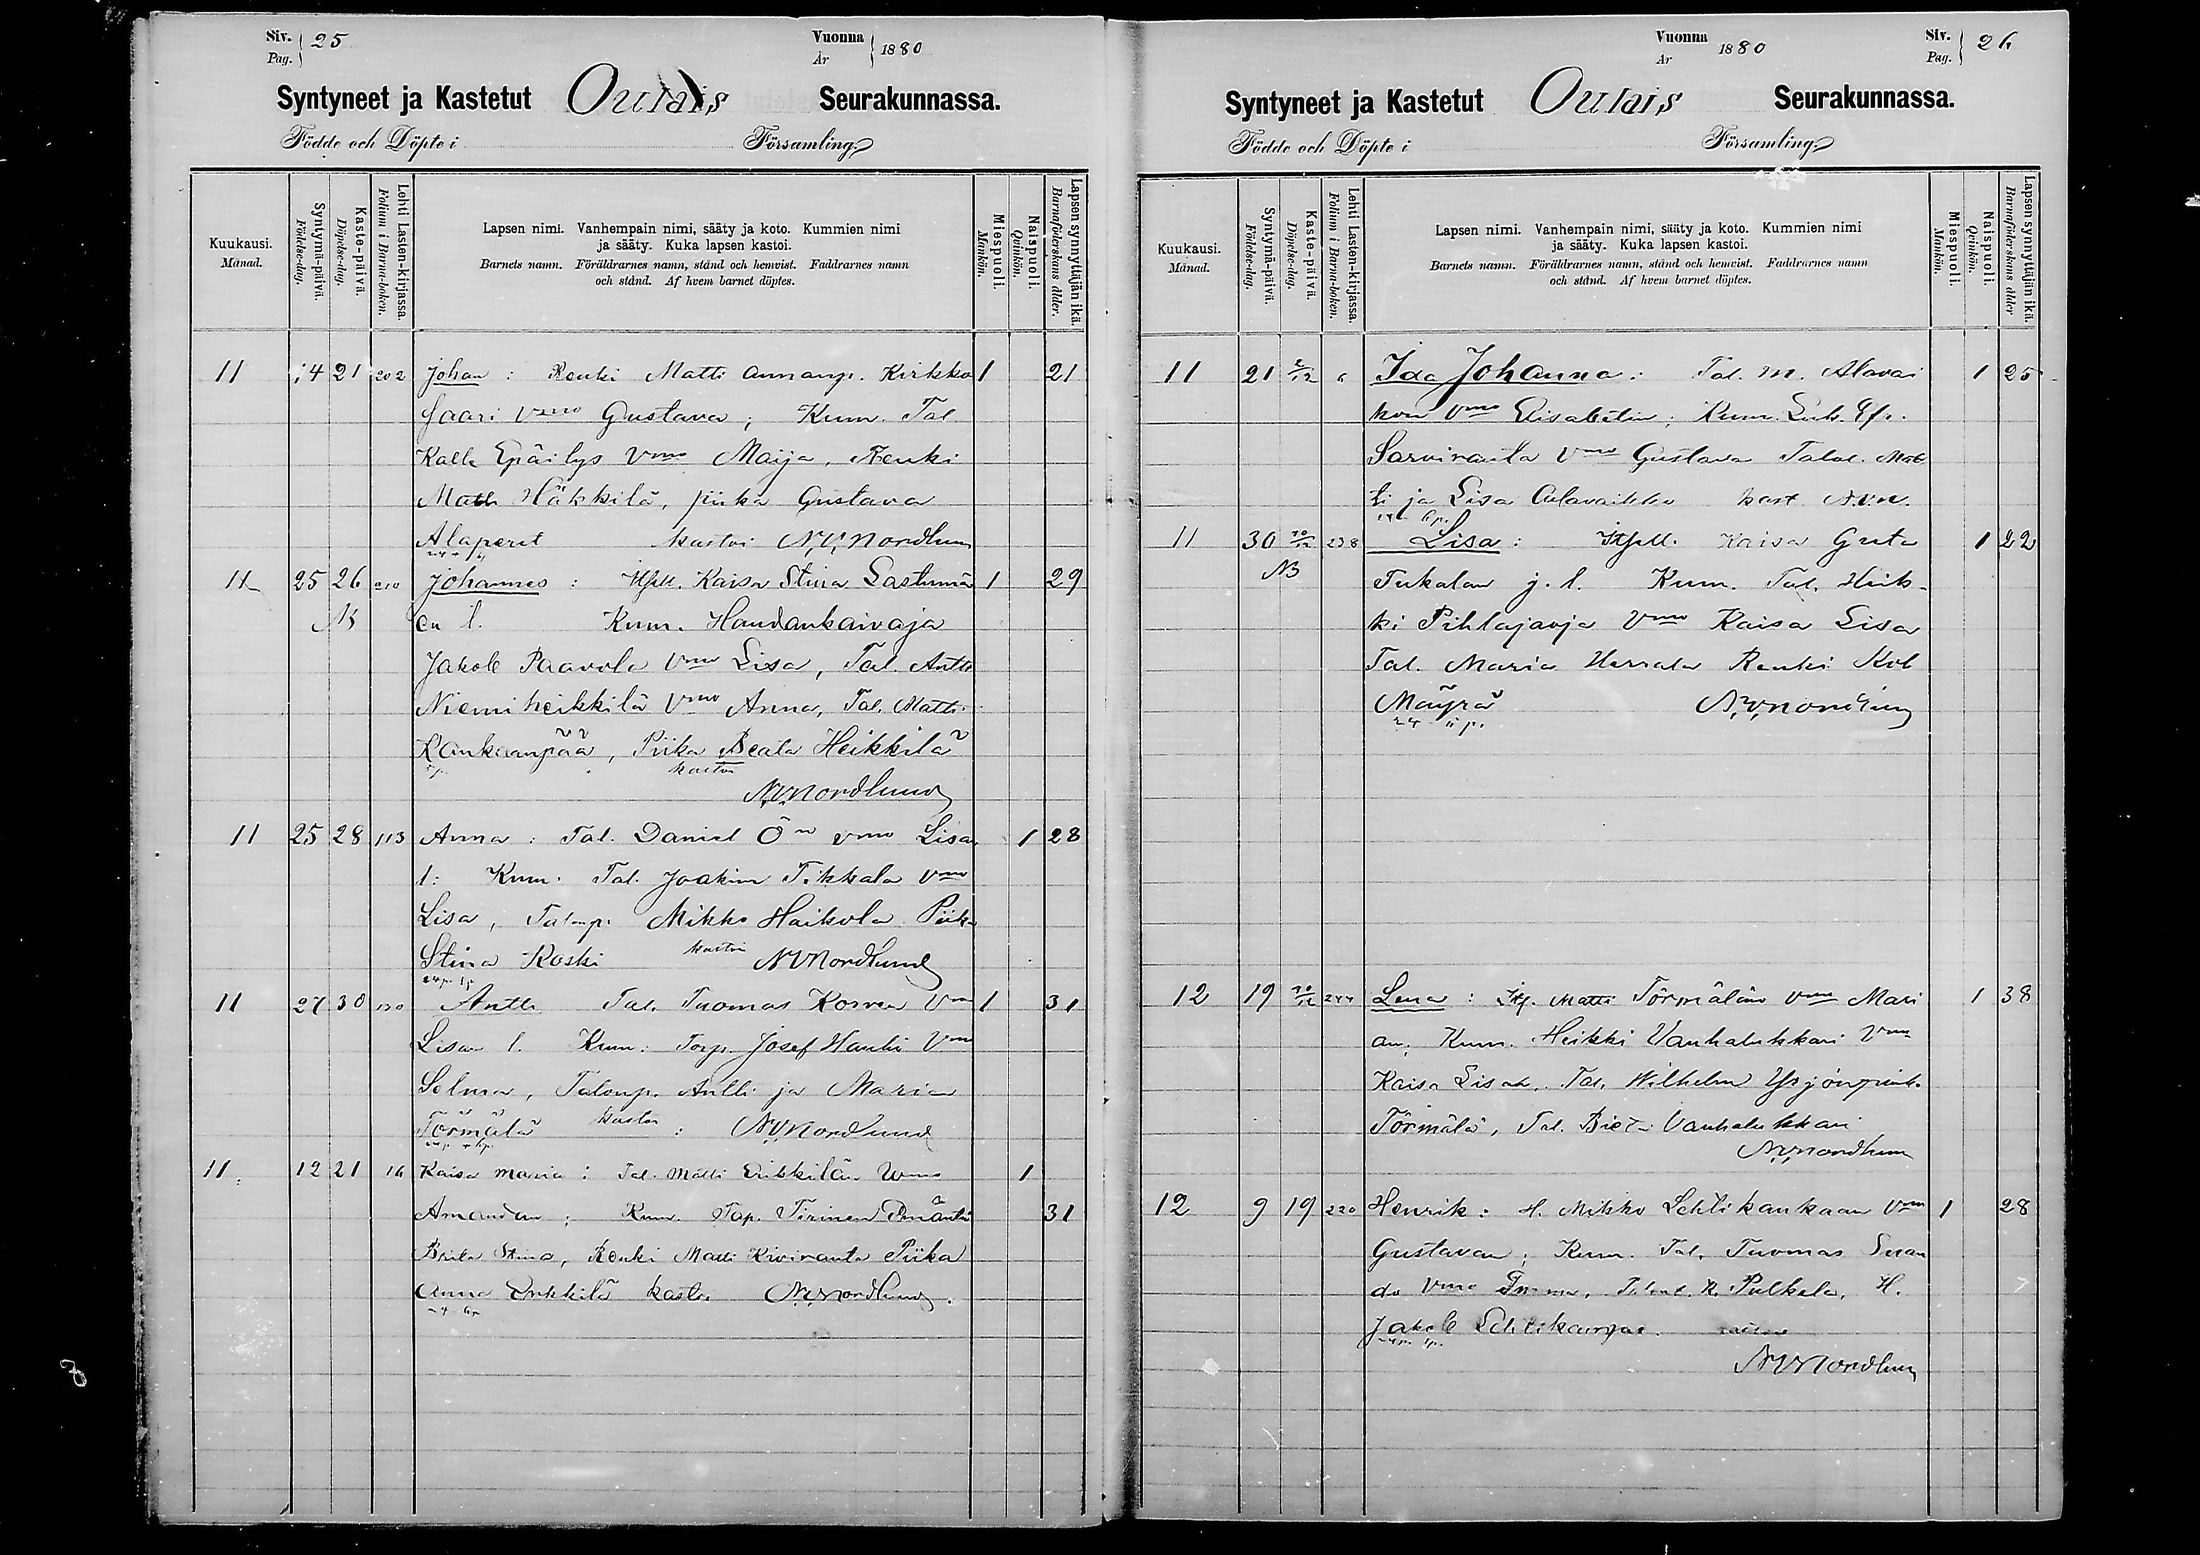 Siv. 25
Pag.
Vuonna 1880
År
Syntyneet ja Kastetut Oulais Seurakunnassa.
Födde och Döpte i Församling
Kuukausi.
Månad.
Syntymä-päivä.
Födelse-dag.
Kaste-päivä.
Döpelse-dag.
Lehti Lasten-kirjassa.
Folium i Barna-boken.
Lapsen nimi. Vanhempain nimi, sääty ja koto. Kummien nimi
ja sääty. Kuka lapsen kastoi.
Barnets namn. Föräldrarnes namn, stånd och hemvist. Faddrarnes namn
och stånd. Af hvem barnet döptes.
Miespuoli.
Mankön.
Naispuoli.
Qvinkön.
Lapsen synnyttäjän ikä.
Barnaföderskans ålder.
11 14 21 202 Johan: Renki Matti Kirkko 1 21
saari Vmo Gustava; Kum. Tal.
Kalle Epäilys Vmo Maija, Renki
Matti Häkkilä, piika Gustava
Alaperet kastoi N.V. Nordlund
11 25 26 210 Johannes: Kaisa Stina Lastumä 1 29
NB en l. Kum. Haudankaivaja
Jakob Paavola Vmo Lisa, Tal. Antti
Niemiheikkilä Vmo Anna, Tal. Matti
Kankaanpää, Piika Beata Heikkilä
kastoi
N.V. Nordlund
11 25 28 113 Anna: Tal. Daniel Ön vmo Lisan 1 28
l: Kum. Tal. Joakim Tikkala vmo
Lisa, Talonp. Mikko Haikola Piika
Stina Koski kastoi N V Nordlund
11 27 30 130 Antti Tal. Tuomas Vmo 1 31
Lisan l. Kum: Torp. Josef Vmo
Selma, Talonp. Antti ja Maria
Törmälä kastoi: N.V. Nordlund
11. 12 21 16 Kaisa Maria: Tal. Matti Erkkilän Vmo 1
Amandan; Kum. Tirinen Emäntä 31
Brita Stina, Renki Matti Kiviranta Piika
Anna Erkkilä kastoi N.V. Nordlund.
Vuonna 1880
År
Siv. 26
Pag.
Syntyneet ja Kastetut Oulais Seurakunnassa.
Födde och Döpte i Församling
Kuukausi.
Månad.
Syntymä-päivä.
Födelse-dag.
Kaste-päivä.
Döpelse-dag.
Lehti Lasten-kirjassa.
Folium i Barna-boken.
Lapsen nimi. Vanhempain nimi, sääty ja koto. Kummien nimi
ja sääty. Kuka lapsen kastoi.
Barnets namn. Föräldrarnes namn, stånd och hemvist. Faddrarnes namn
och stånd. Af hvem barnet döptes.
Miespuoli.
Mankön.
Naispuoli.
Qvinkön.
Lapsen synnyttäjän ikä.
Barnaföderskans ålder
11 21 2/12 6 Ida Johanna: Tal. M. Alavai 1 25
kon Vmo Elisabetin; Kum.
Sarviranta Vmo Gustava Mat
ti ja Lisa Alavaikko kast N.V.N.
11 30 238 Lisa: Kaisa Greta 1 22
NB Tukalan j. l. Kum. Tal. Heik-
ki Pihlajaoja Vmo Kaisa Lisa
Tal. Maria Renki
Mäyrä N.V. Nordlund
12 19 244 Lena: Matti Törmälän vmo Mari 1 38
an; Kum. Heikki Vanhalukkari Vmo
Kaisa Lisa, Tal. Wilhelm
Törmälä, Tal. Vanhalukkari
N.V. Nordlund
12 9 19 220 Henrik: H. Mikko Lehtikankaan Vmo 1 28
Gustavan; Kum. Tal. Tuomas
Vmo Pulkala, H.
Jakob Lehtikangas.
N.V. Nordlund